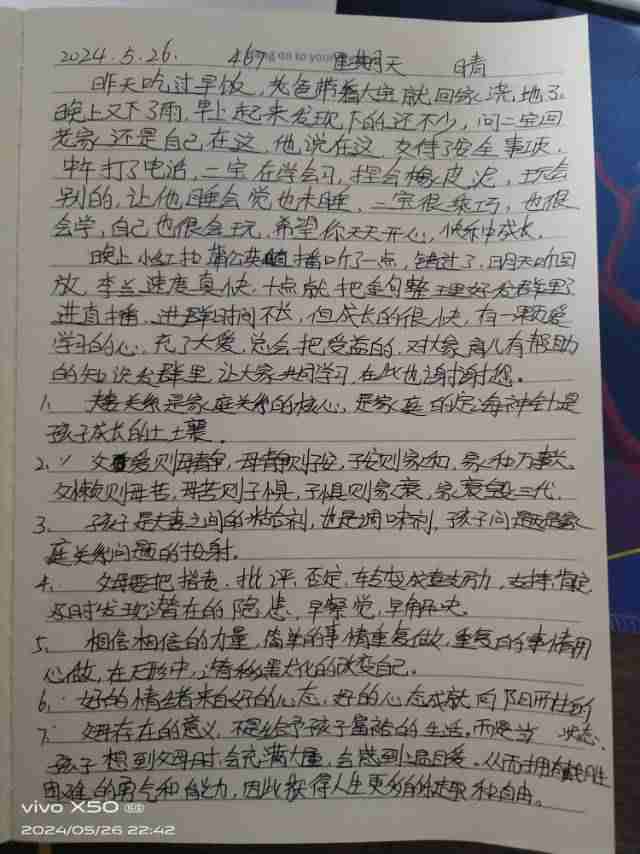 2024.5.26. 467 星期天 晴
昨天吃过早饭,爸爸带着大宝就回家浇地了
晚上又下了雨,早上起来发现下的还不少,问二宝回
老家还是自己在这,他说在这,交待了安全事项.
中午打了电话,二宝在学会习,捏会橡皮泥,玩会
别的,让他睡会觉也未睡,二宝很乖巧,也很
会学,自己也很会玩,希望你天天开心,快乐中成长.
晚上小红拍蒲公英直播听了一点,错过了,明天听回
放,李兰速度真快,十点就把金句整理好发群里了
进直播,进群时间不长,但成长的很快,有一颗爱
学习的心,充了大爱,总会把受益的,对大家育儿有帮助
的知识发群里,让大家共同学习,在此也谢谢您。
1、夫妻关系是家庭关系的核心,是家庭的定海神针是
孩子成长的土壤.
2、父爱则母静,母静则子安,子安则家和,家和万事兴.
父懒则母苦,母苦则子惧,子惧则家衰,家衰毁三代.
3、孩子是夫妻之间的粘合剂,也是调味剂,孩子问题是家
庭关系问题的投射.
4、父母要把指责.批评.否定,转变成查支力,支持,肯定
及时发现潜在的隐患,早察觉,早解决.
5、相信相信的力量,简单的事情重复做,重复的事情用
心做,在无形中,潜移默化的改变自己.
6、好的情绪来自好的心态,好的心态成就向阳而生的
7、父母存在的意义,不是给予孩子富裕的生活,而是当 状态.
孩子想到父母时,会充满力量,会感到温暖.从而拥有战胜
困难的勇气和能力,因此获得人生更多的乐趣和自由。
vivo X50 5G
2024/05/26 22:42